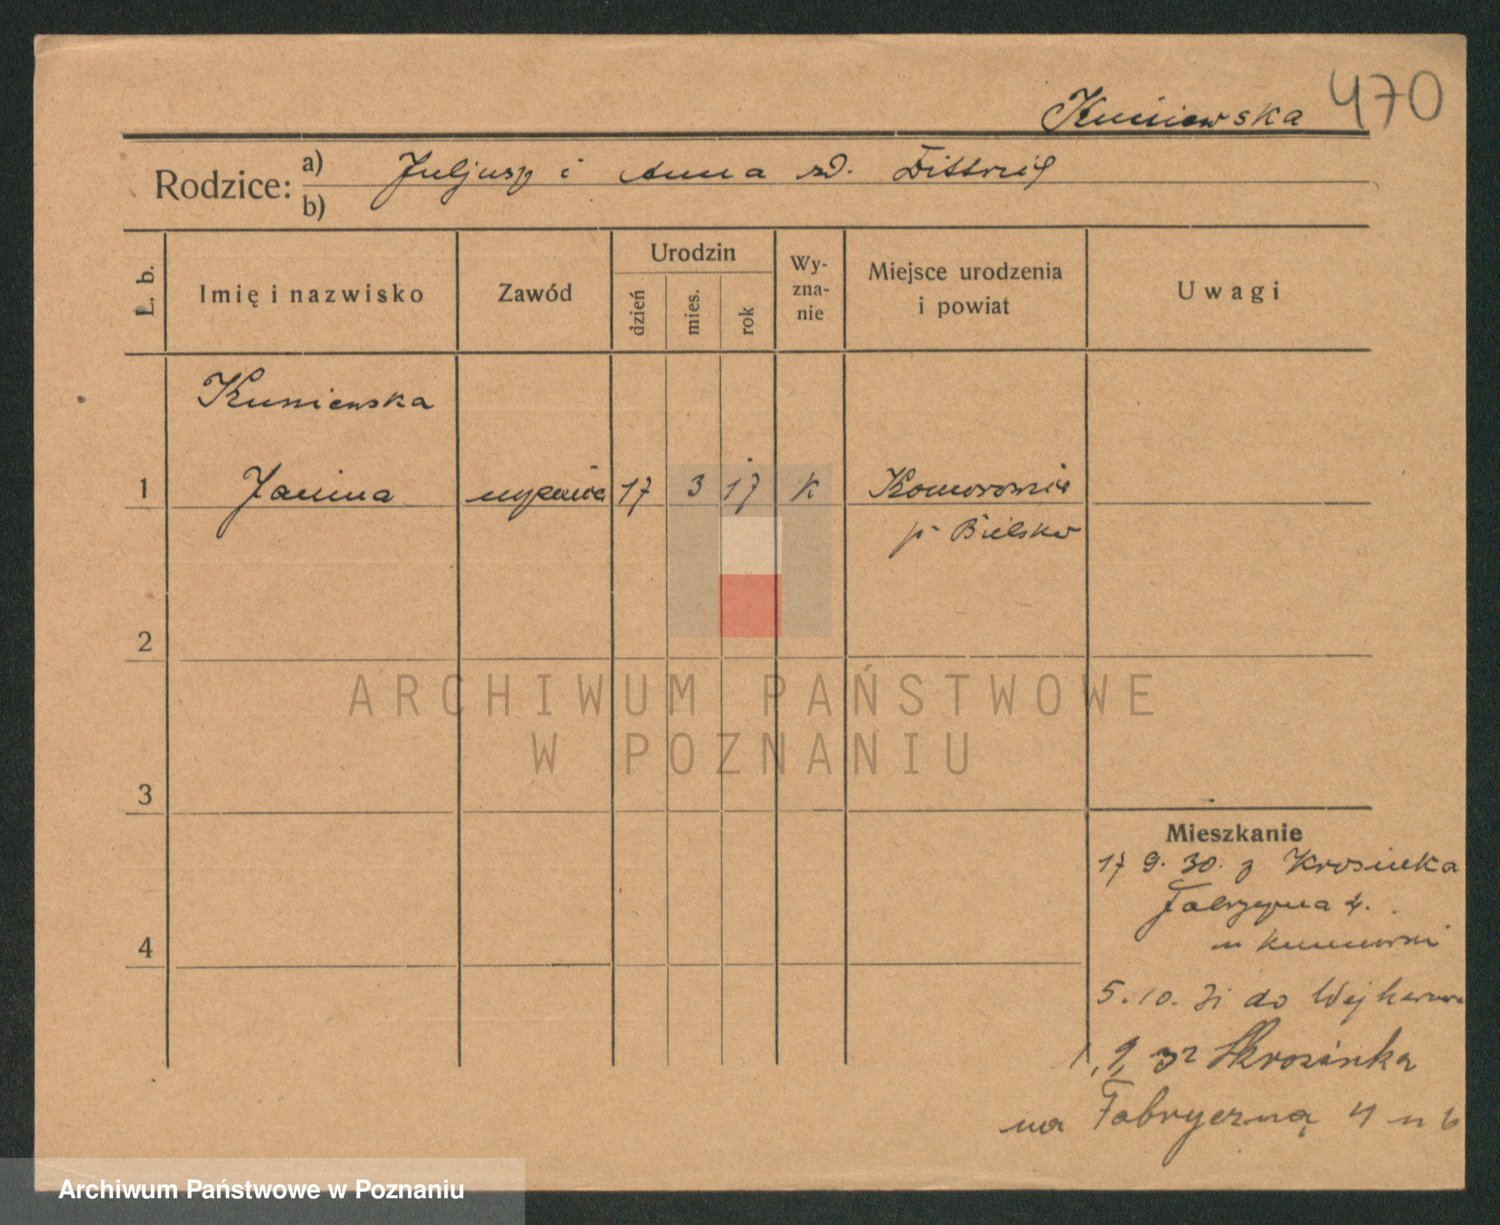 Kuniewska 470
Rodzice: a) Juljusz i Anna zd. Dittrich
b)
L. b.
Imię i nazwisko
Zawód
Urodzin
dzień
mies.
rok
Wy-
zna-
nie
Miejsce urodzenia
i powiat
Uwagi
Kuniewska
1 Janina uczenica 17 3 17 k Komorowice
p. Bielsko
2
ARCHIWUM PAŃSTWOWE
W POZNANIU
3
Mieszkanie
17 9. 30. z Krosinka
Fabryczna 4.
4
5. 10. 31 do Wejherowa
1, 9, 32 Krosinka
na Fabryczną 4
Archiwum Państwowe w Poznaniu